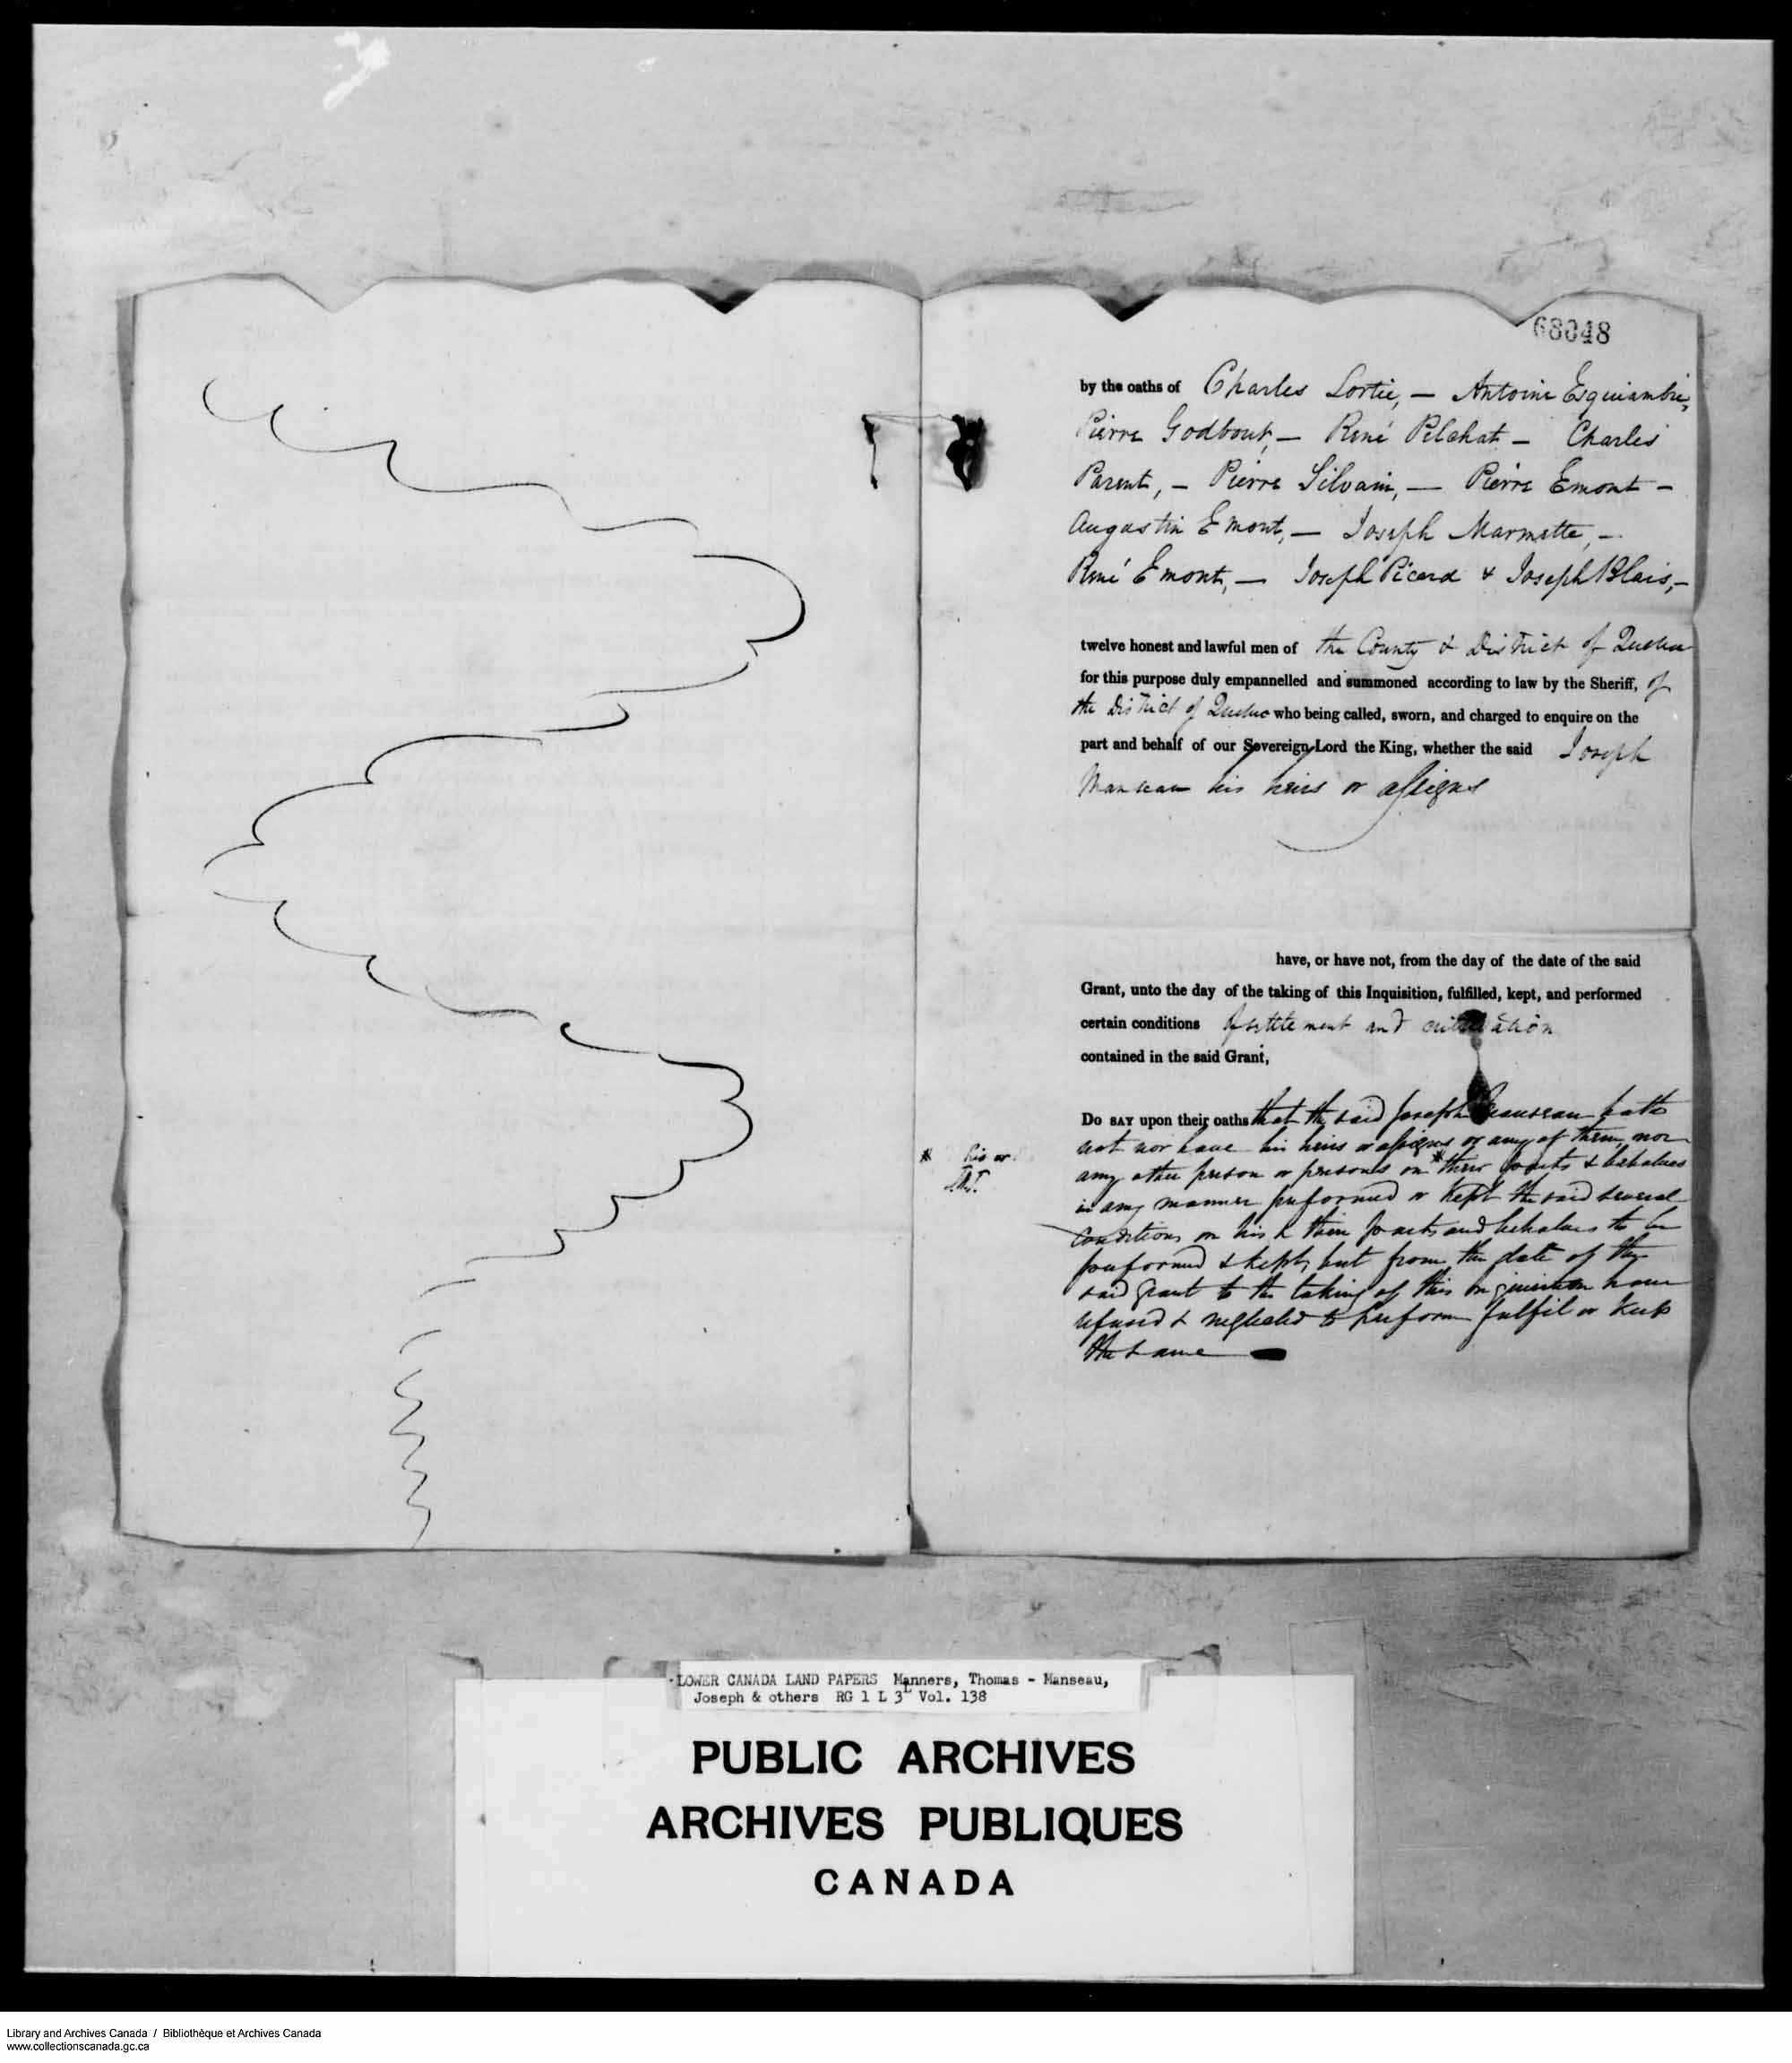 68048
by the oaths of Charles Lortie, — Antoine Esquiambre,
Pierre Godbout, — René Pelchat — Charles
Parent, — Pierre Silvain, — Pierre Emont —
Augustin Emont, — Joseph Marmette, —
René Emont, — Joseph Picard & Joseph Blais, —
twelve honest and lawful men of the County & District of Quebec
for this purpose duly empannelled and summoned according to law by the Sheriff, of
the District of Quebec who being called, sworn, and charged to enquire on the
part and behalf of our Sovereign Lord the King, whether the said Joseph
Manseau his heirs or assigns
have, or have not, from the day of the date of the said
Grant, unto the day of the taking of this Inquisition, fulfilled, kept, and performed
certain conditions of settlement and cultivation
contained in the said Grant,
Do say upon their oaths that the said Joseph Manseau hath
not nor have his heirs or assigns or any of them, nor
* his or
any other person or persons on * their parts & behalves
in any manner performed or kept the said several
conditions on his & their parts and behalves to be
performed & kept, but from the date of the
said Grant to the taking of this inquisition have
refused & neglected to perform fulfil or keep
the same —
LOWER CANADA LAND PAPERS Manners, Thomas - Manseau,
Joseph & others RG 1 L 3L Vol. 138
PUBLIC ARCHIVES
ARCHIVES PUBLIQUES
CANADA
Library and Archives Canada / Bibliothèque et Archives Canada
www.collectionscanada.gc.ca